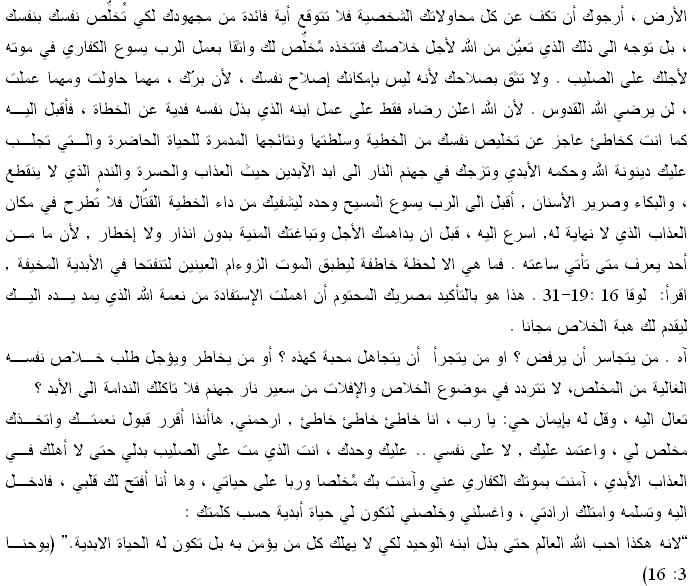 الأرض ، أرجوك أن تكف عن كل محاولاتك الشخصية فلا تتوقع أية فائدة من مجهودك لكي تُخلّص نفسك بنفسك
، بل توجه الى ذلك الذي تعيّن من الله لأجل خلاصك فتتخذه مُخلّص لك واثقا بعمل الرب يسوع الكفاري في موته
لأجلك على الصليب . ولا تثق بصلاحك لأنه ليس بإمكانك إصلاح نفسك ، لأن برّك ، مهما حاولت ومهما عملت
، لن يرضي الله القدوس . لأن الله اعلن رضاه فقط على عمل ابنه الذي بذل نفسه فدية عن الخطاة ، فأقبل اليه
كما انت كخاطئ عاجز عن تخليص نفسك من الخطية وسلطتها ونتائجها المدمرة للحياة الحاضرة والتي تجلب
عليك دينونة الله وحكمه الأبدي وتزجك في جهنم النار الى ابد الآبدين حيث العذاب والحسرة والندم الذي لا ينقطع
، والبكاء وصرير الأسنان , أقبل الى الرب يسوع المسيح وحده ليشفيك من داء الخطية القتّال فلا تُطرح في مكان
العذاب الذي لا نهاية له, اسرع اليه ، قبل ان يداهمك الأجل وتباغتك المنية بدون انذار ولا إخطار , لأن ما من
أحد يعرف متى تأتي ساعته . فما هي الا لحظة خاطفة ليطبق الموت الزوءام العينين لتنفتحا في الأبدية المخيفة ,
اقرأ: لوقا 16 :19-31 . هذا هو بالتأكيد مصريك المحتوم أن اهملت الإستفادة من نعمة الله الذي يمد يده اليك
ليقدم لك هبة الخلاص مجانا .
آه . من يتجاسر أن يرفض ؟ او من يتجرأ أن يتجاهل محبة كهذه ؟ أو من يخاطر ويؤجل طلب خلاص نفسه
الغالية من المخلص، لا تتردد في موضوع الخلاص والإفلات من سعير نار جهنم فلا تاكلك الندامة الى الأبد ؟
تعال اليه ، وقل له بإيمان حي: يا رب ، انا خاطئ خاطئ خاطئ , ارحمني, هاأنذا أقرر قبول نعمتك واتخذك
مخلص لي ، واعتمد عليك , لا على نفسي .. عليك وحدك ، انت الذي مت على الصليب بدلي حتى لا أهلك في
العذاب الأبدي ، آمنت بموتك الكفاري عني وآمنت بك مُخلصا وربا على حياتي ، وها أنا أفتح لك قلبي ، فادخل
اليه وتسلمه وامتلك ارادتي ، واغسلني وخلصني لتكون لي حياة أبدية حسب كلمتك :
“لانه هكذا احب الله العالم حتى بذل ابنه الوحيد لكي لا يهلك كل من يؤمن به بل تكون له الحياة الابدية.” (يوحنا
3: 16)